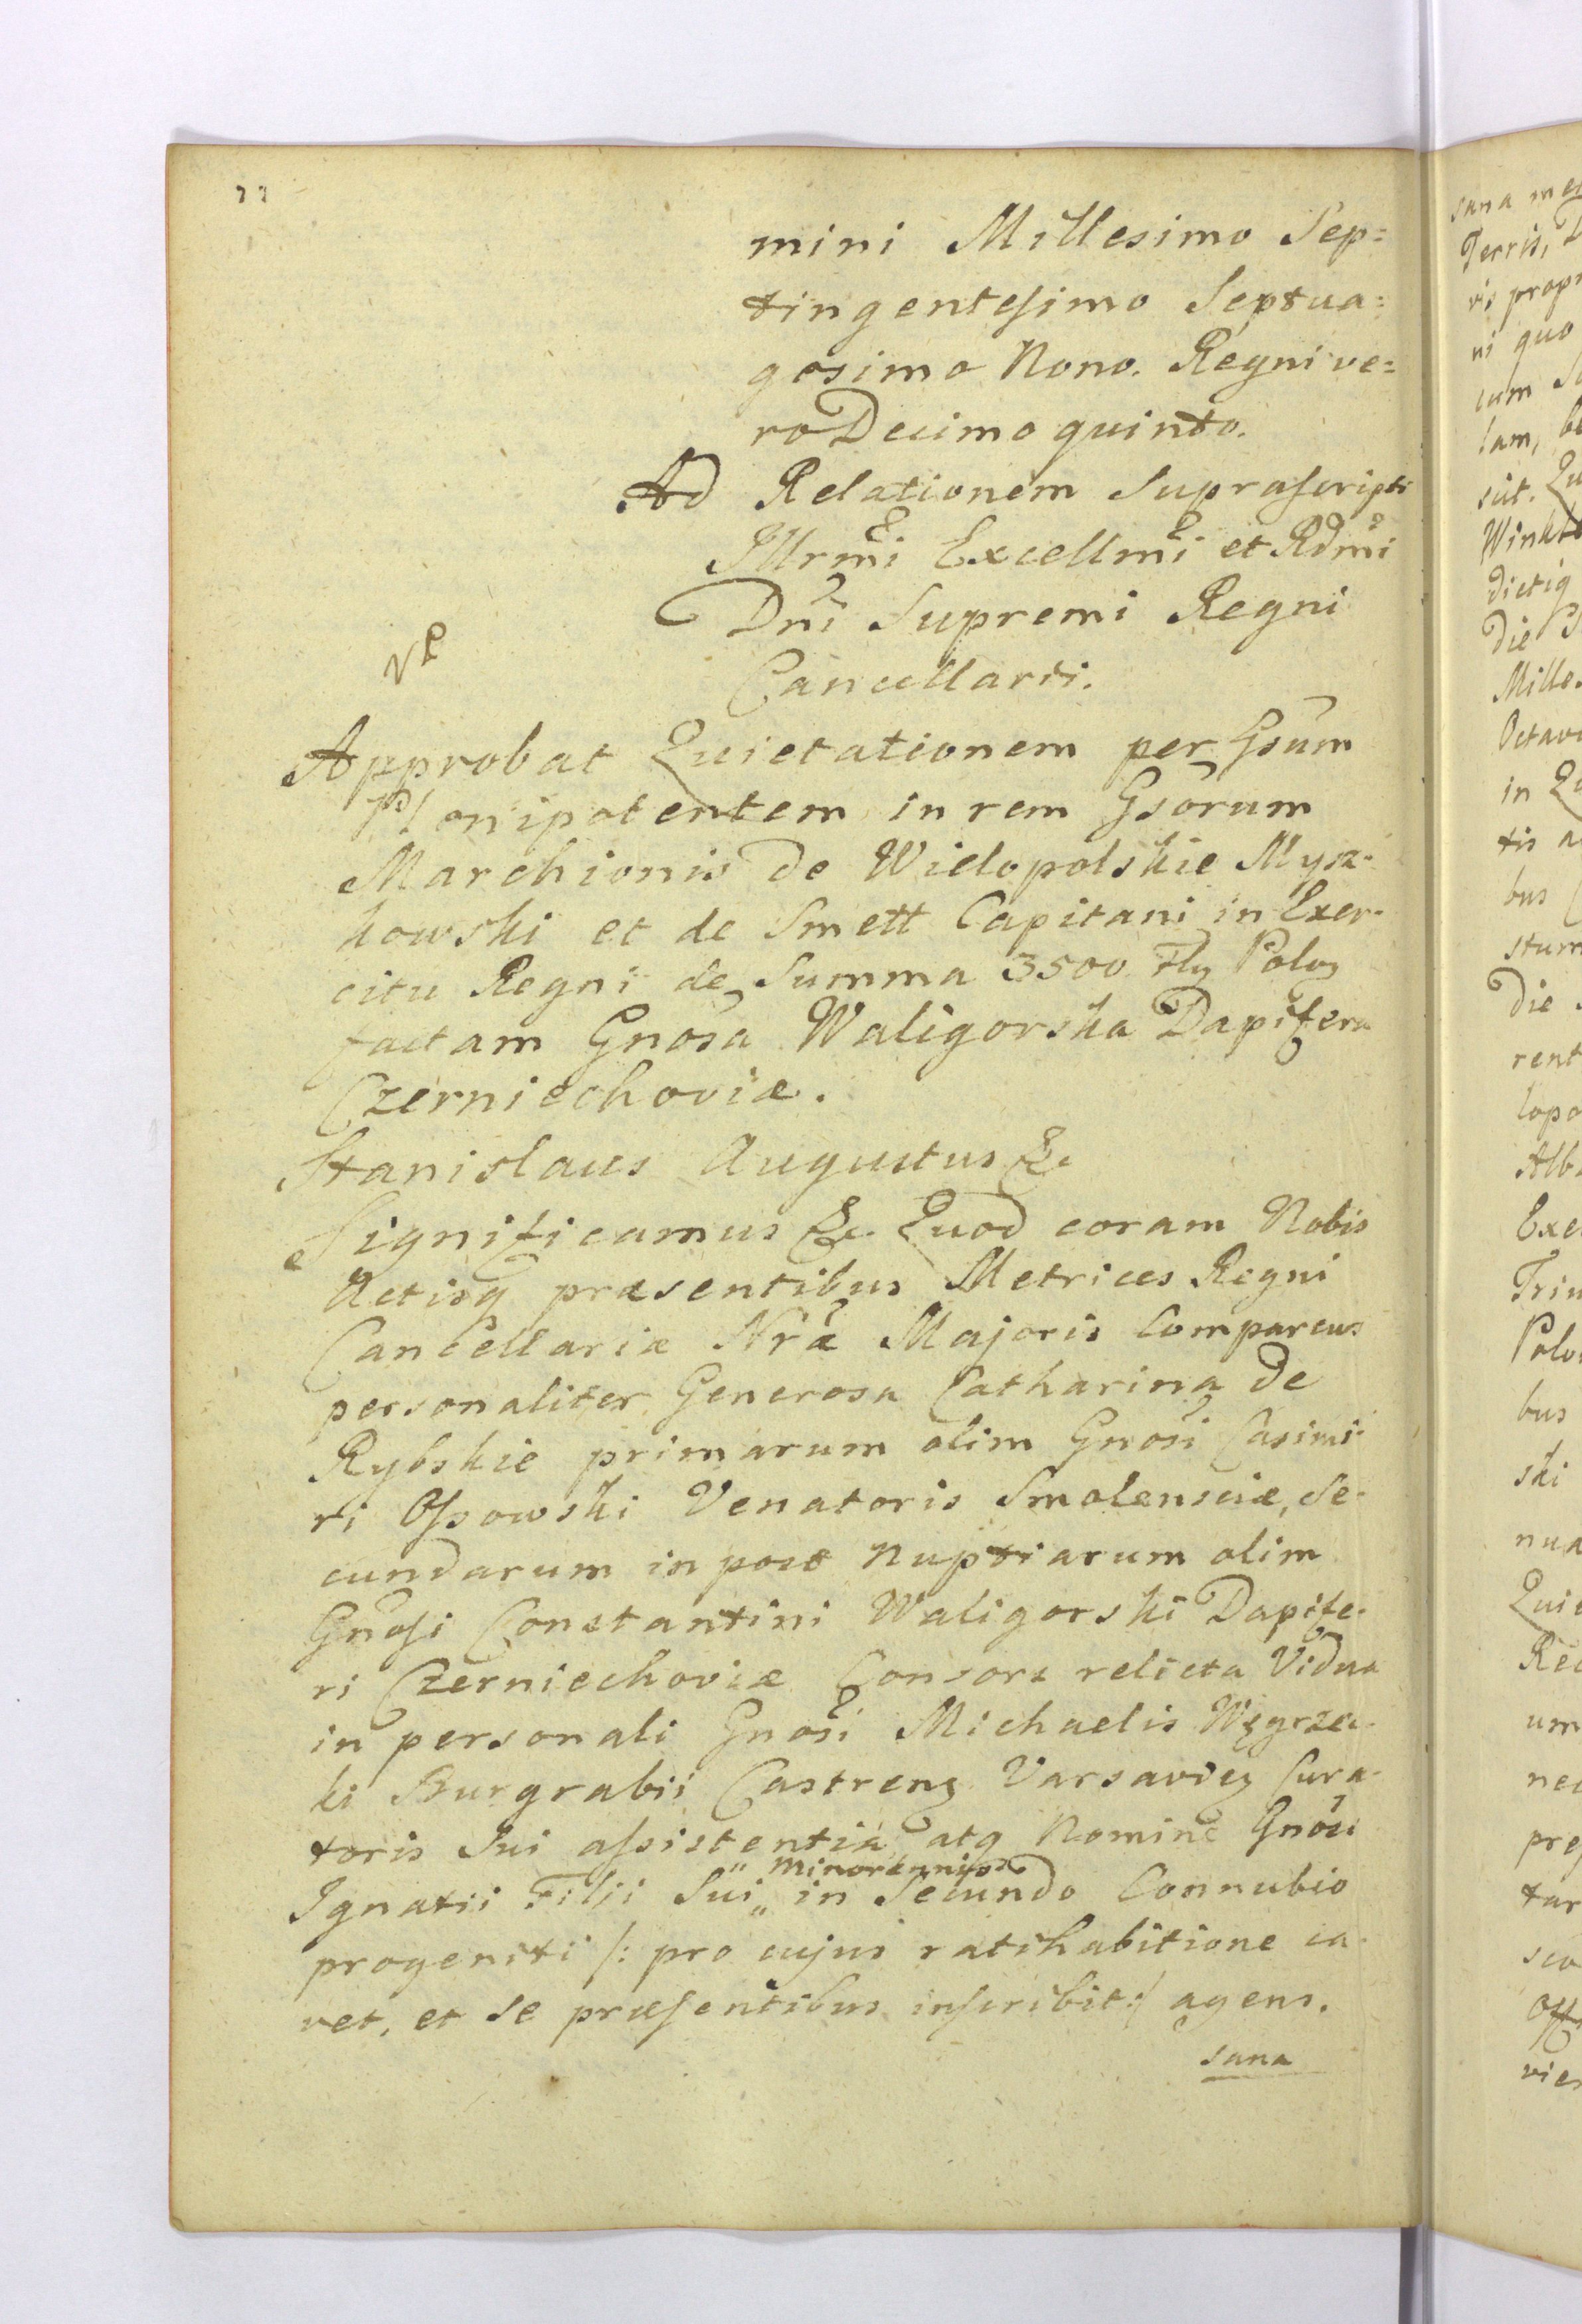 mini Millesimo Sep=
tingentesimo Septua=
gesimo Nono. Regni ve=
ro Decimo quinto.
Ad Relationem Suprascripti
Illrmi Excellmi et Rdmi
Dni Supremi Regni
Cancellarii.
Approbat Quietationem per Gsum
Plenipotentem in rem Gsorum
Marchionis de Wielopolskie Mysz-
kowski et de Smett Capitani in Exer-
citu Regni de Summa 3500 Flg Polog
factam Gnosa Waligorska Dapifera
Czerniechoviæ.
Stanislaus Augustus &c
Significamus &c. Quod coram Nobis
Actisq præsentibus Metrices Regni
Cancellariæ Nræ Majoris Comparens
personaliter Generosa Catharina de
Rybskie primarum olim Gnosi Casimi-
ri Ossowski Venatoris Smolensciæ, Se-
cundarum in post Nuptiarum olim
Gnosi Constantini Waligorski Dapife-
ri Czerniechoviæ Consors relicta Vidua
in personali Gnosi Michaelis Węgrzec-
ki Burgrabii Castreng Varsavieg Cura-
toris Sui assistentia atq Nomine Gnosi
Minorennis
Ignatii Filii Sui „ in Secundo Connubio
progeniti /: pro cujus ratihabitione ca-
vet, et se præsentibus inscribit :/ agens.
sana